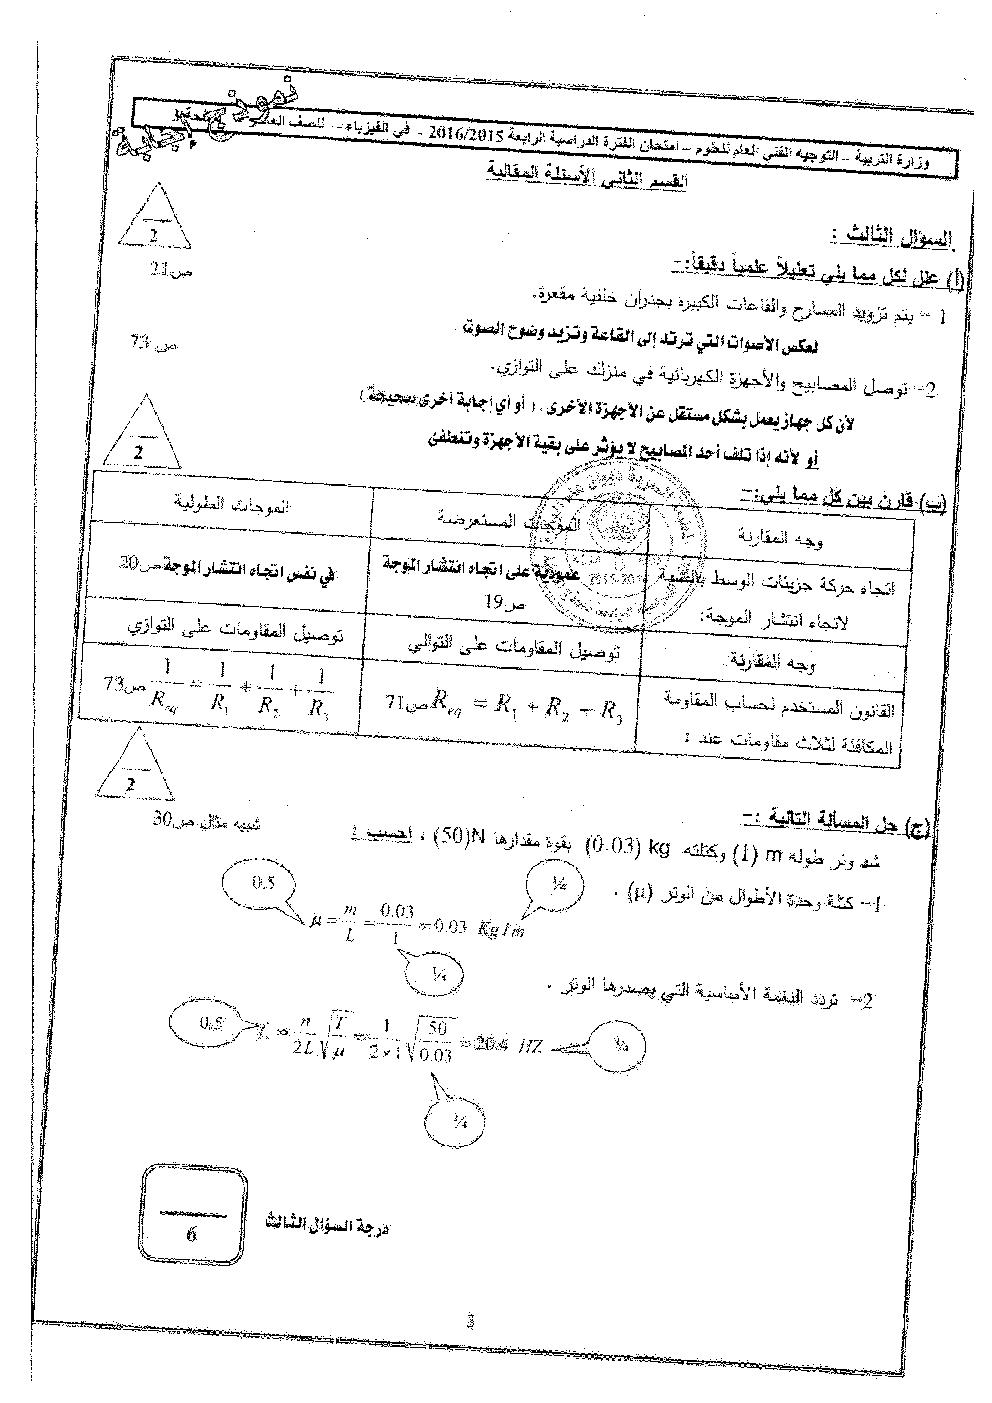 نموذج إجابة
وزارة التربية – التوجيه الفني العام للعلوم – امتحان الفترة الدراسية الرابعة 2016/2015 - في الفيزياء - للصف
القسم الثاني الأسئلة المقالية
2
السؤال الثالث :
(أ) علل لكل مما يلي تعليلاً علمياً دقيقاً:-
ص21
1 – يتم تزويد المسارح والقاعات الكبيرة بجدران خلفية مقعرة.
لعكس الأصوات التي ترتد إلى القاعة وتزيد وضوح الصوت .
ص 73
2- توصل المصابيح والأجهزة الكهربائية في منزلك على التوازي.
لأن كل جهاز يعمل بشكل مستقل عن الأجهزة الأخرى . ( أو أي إجابة أخرى صحيحة )
أو لأنه إذا تلف أحد المصابيح لا يؤثر على بقية الأجهزة وتنطفئ
2
(ب) قارن بين كل مما يلي:-
وجه المقارنة | الموجات المستعرضة | الموجات الطولية
اتجاه حركة جزيئات الوسط بالنسبة لاتجاه انتشار الموجة: | عمودية على اتجاه انتشار الموجة ص19 | في نفس اتجاه انتشار الموجة ص20
وجه المقارنة | توصيل المقاومات على التوالي | توصيل المقاومات على التوازي
القانون المستخدم لحساب المقاومة المكافئة لثلاث مقاومات عند : | R_eq = R_1 + R_2 + R_3 ص71 | 1/R_eq = 1/R_1 + 1/R_2 + 1/R_3 ص73
2
(ج) حل المسألة التالية :-
شبيه مثال ص30
شد وتر طوله m (1) وكتلته kg (0.03) بقوة مقدارها N(50) ، احسب :
1- كتلة وحدة الأطوال من الوتر (μ) .
0.5
¼
μ = m/L = 0.03/1 = 0.03 Kg/m
¼
2- تردد النغمة الأساسية التي يصدرها الوتر .
0.5
= n/2L √(T/μ) = 1/(2×1) √(50/0.03) = 20.4 HZ
¼
¼
6
درجة السؤال الثالث
3